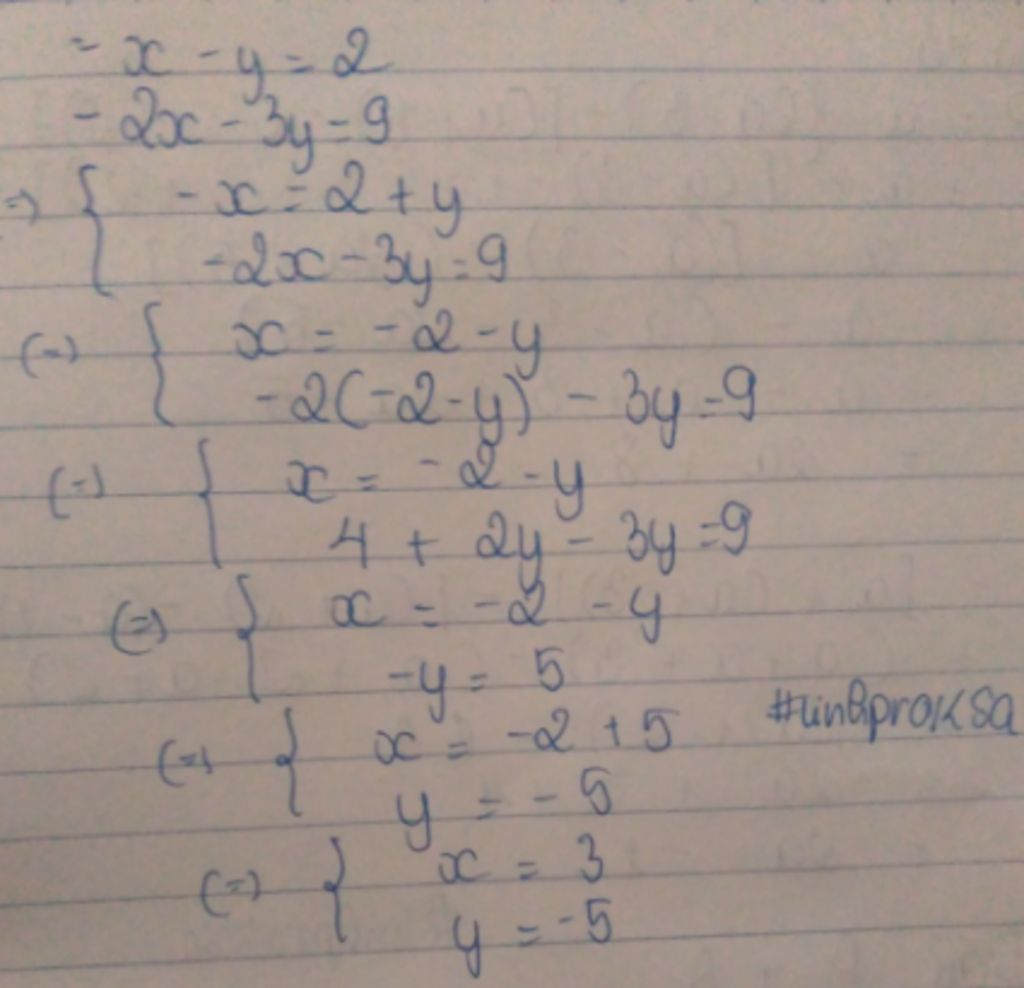 - x - y = 2
- 2x - 3y = 9
=> { - x = 2 + y
-2x - 3y = 9
(=) { x = -2 - y
-2(-2 - y) - 3y = 9
(=) { x = -2 - y
4 + 2y - 3y = 9
(=) { x = -2 - y
-y = 5
(=) { x = -2 + 5
y = -5
(=) { x = 3
y = -5